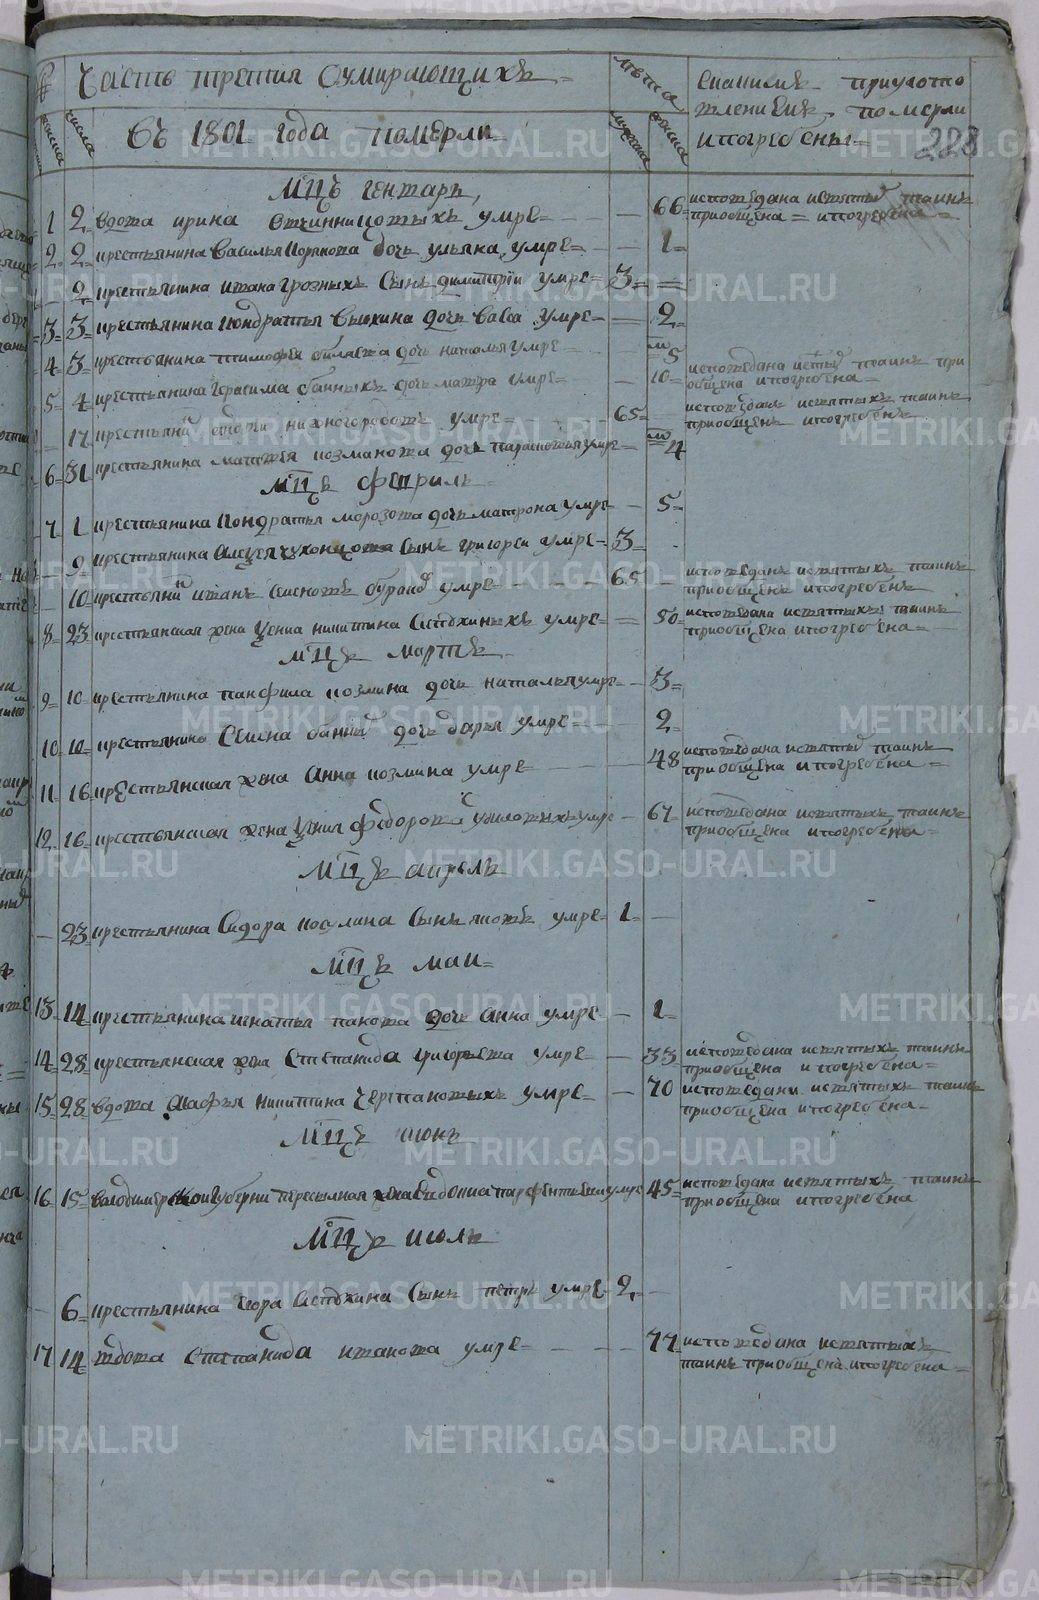 Часть третия Оумирающихъ
въ 1801 года померли
числа
лѣта
Скакимъ приуготовлениемъ
померли
ипогребены
228
Мцъ генварь
1 2 вдова ирина Овчинницовыхъ умре 66 исповедана исвятыхъ таинъ приобщена ипогребена
2 2 крестьянина василья дочь ульяна умре 1
2 крестьянина ивана грозныхъ Сынъ димитрїи умре 3
3 3 крестьянина кондратья вьюхина дочь васса умре 2
4 3 крестьянина тимофея биляева дочь наталья умре м 5
5 4 крестьянина Герасима банныхъ дочь мавра умре 10 исповедана исвятыхъ таинъ приобщена ипогребена
17 крестьянинъ нижногородовъ умре 65 исповеданъ исвятыхъ таинъ приобщенъ ипогребенъ
6 31 крестьянина матвея козманова дочь парасковья умре м 4
Мцъ февриль
7 1 крестьянина Кондратья морозова дочь матрона умре 5
9 крестьянина Алецея чухонцова Сынъ григореи умре 3
10 крестьянинъ иванъ Семеновъ умре 65 исповеданъ исвятыхъ таинъ приобщенъ ипогребенъ
8 23 крестьянская жена никитина умре 50 исповедана исвятыхъ таинъ приобщена ипогребена
Мцъ мартъ
9 10 крестьянина панфила козмина дочь наталья умре 3
10 10 крестьянина Семена банныхъ дочь дарья умре 2
11 16 крестьянская жена Анна козмина умре 48 исповедана исвятыхъ таинъ приобщена ипогребена
12 16 крестьянская жена федорова умре 67 исповедана исвятыхъ таинъ приобщена ипогребена
Мцъ апрель
23 крестьянина Сидора косулина Сынъ яковъ умре 1
Мцъ маи
13 14 крестьянина игнатья панова дочь Анна умре 1
14 28 крестьянская жена Степанида григорьева умре 33 исповедана исвятыхъ таинъ приобщена ипогребена
15 28 вдова Агафья никитина черпановыхъ умре 70 исповедана исвятыхъ таинъ приобщена ипогребена
Мцъ июнь
16 15 володимерскои губерни пересылная жена Евдокиа парфентьева умре 45 исповедана исвятыхъ таинъ приобщена ипогребена
Мцъ июль
6 крестьянина Егора Сынъ петръ умре 2
17 14 вдова Степанида иванова умре 77 исповедана исвятыхъ таинъ приобщена ипогребена
METRIKI.GASO-URAL.RU